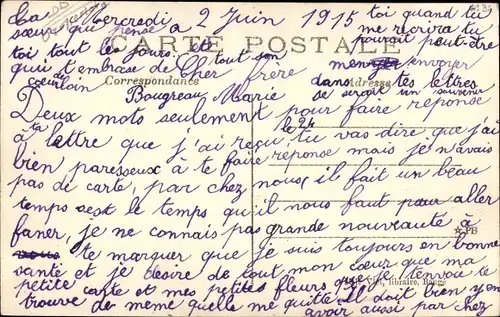 Mercredi 2 Juin 1915
Cher frère
Deux mots seulement pour faire réponse
à ta lettre que j'ai reçu, le 24 tu vas dire que j'ai
bien paresseux à te faire réponse mais je n'avais
pas de carte, par chez nous il fait un beau
temps sest le temps qu'il nous faut pour aller
faner, je ne connais pas grande nouveauté à
te marquer que je suis toujours en bonne
santé et je désire de tout mon cœur que ma
petite carte et mes petites fleurs que je t'envoie te
trouve de même quelle me quitte. Il doit bien y en
avoir aussi par chez
toi quand tu
me récrira tu
pourait peut-être
envoyer
dans tes lettres
se serait un souvenir
Ta
sœur qui pense à
toi tout les jours et
qui t'embrase de tout son
cœur de loin
Bougreau Marie
CARTE POSTALE
Correspondance
Adresse
PB
libraire, Baugé